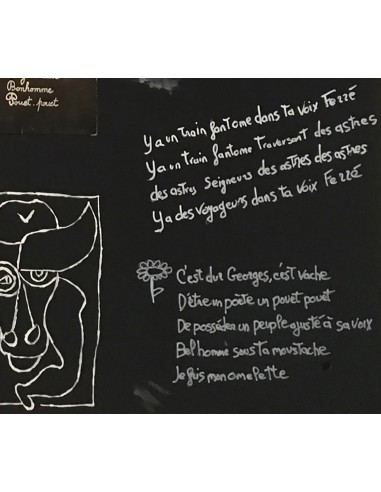 Bonhomme
Pouet-pouet
Y a un train fantome dans ta voix Ferré
Y a un train fantome traversant des astres
des astres Seigneurs des astres des astres
Y a des voyageurs dans ta voix Ferré
C'est dur Georges, c'est vache
D'être un poète un pouet pouet
De posséder un peuple ajusté à sa voix
Bel homme sous ta moustache
Je fuis mon omelette